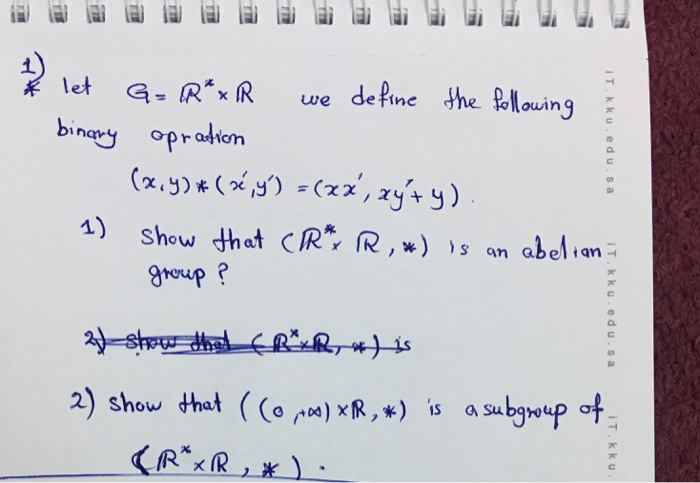 1)
* let G = ℝ* × ℝ we define the following
binary opration
(x,y) * (x',y') = (xx', xy'+y).
1) show that (ℝ* × ℝ, *) is an abelian
group?
2) show that (ℝ* × ℝ, *) is
2) show that ((0,+∞) × ℝ, *) is a subgroup of
(ℝ* × ℝ, *).
iT.kku.edu.sa
iT.kku.edu.sa
iT.kku.